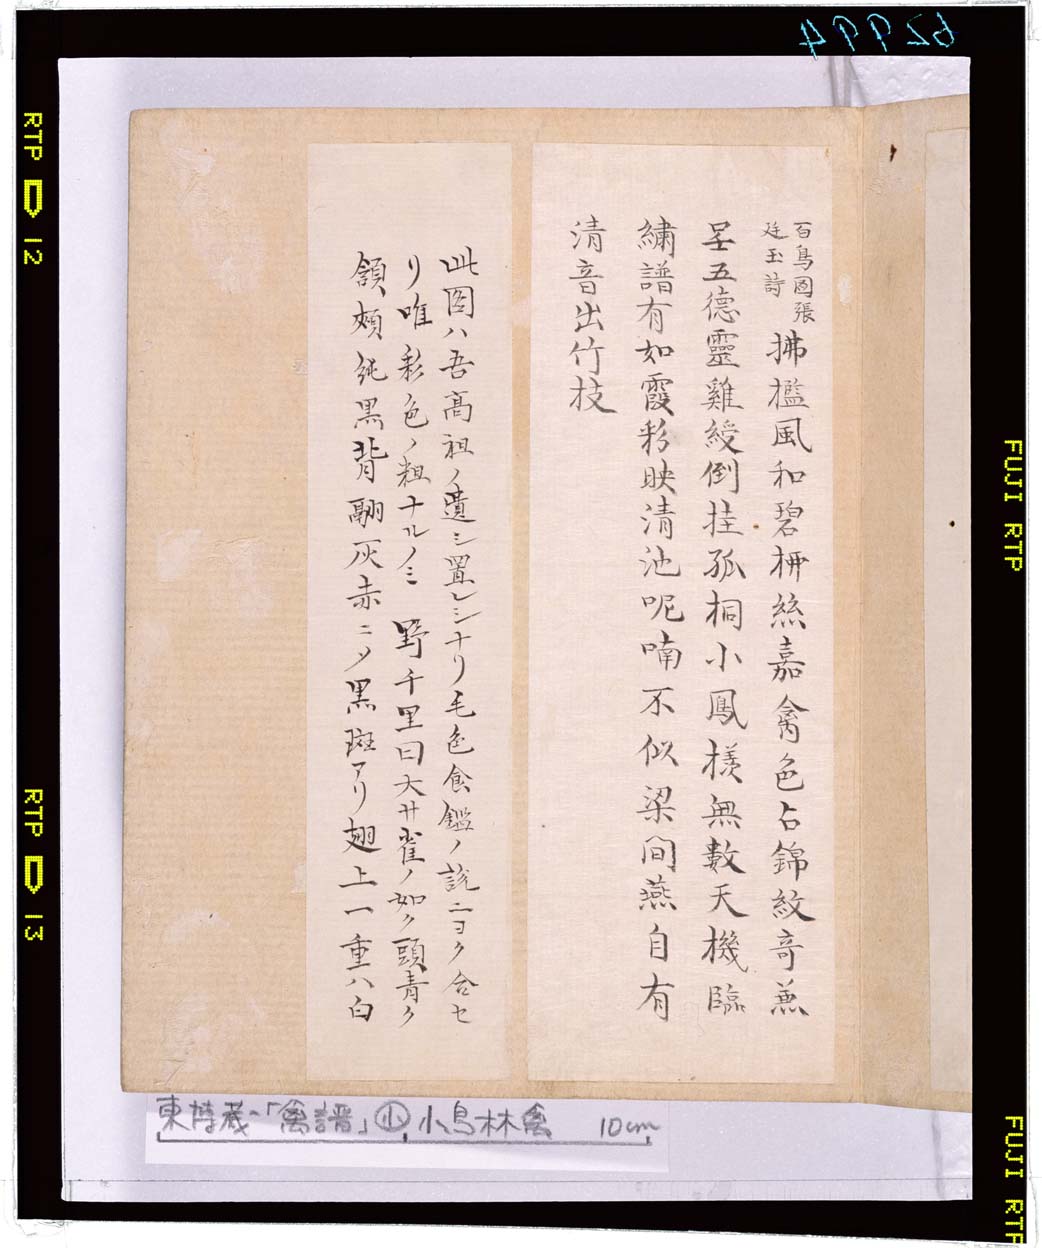 百鳥圖張
廷玉詩
拂檻風和碧柳絲嘉禽色占錦紋竒兼
呈五德靈雞綬倒挂孤桐小鳳様無數天機臨
繍譜有如霞彩映清池呢喃不似梁間燕自有
清音出竹枝
此圖ハ吾髙祖ノ遺シ置レシナリ毛色食鑑ノ説ニヨク合セ
リ唯彩色ノ粗ナルノミ 野千里曰大サ雀ノ如ク頭青ク
頷頰純黒背翮灰赤ニノ黒斑アリ翅上一重ハ白
東博蔵「禽譜」小 小鳥林禽 10cm
62994
RTP 12
RTP 13
FUJI RTP
FUJI RTP